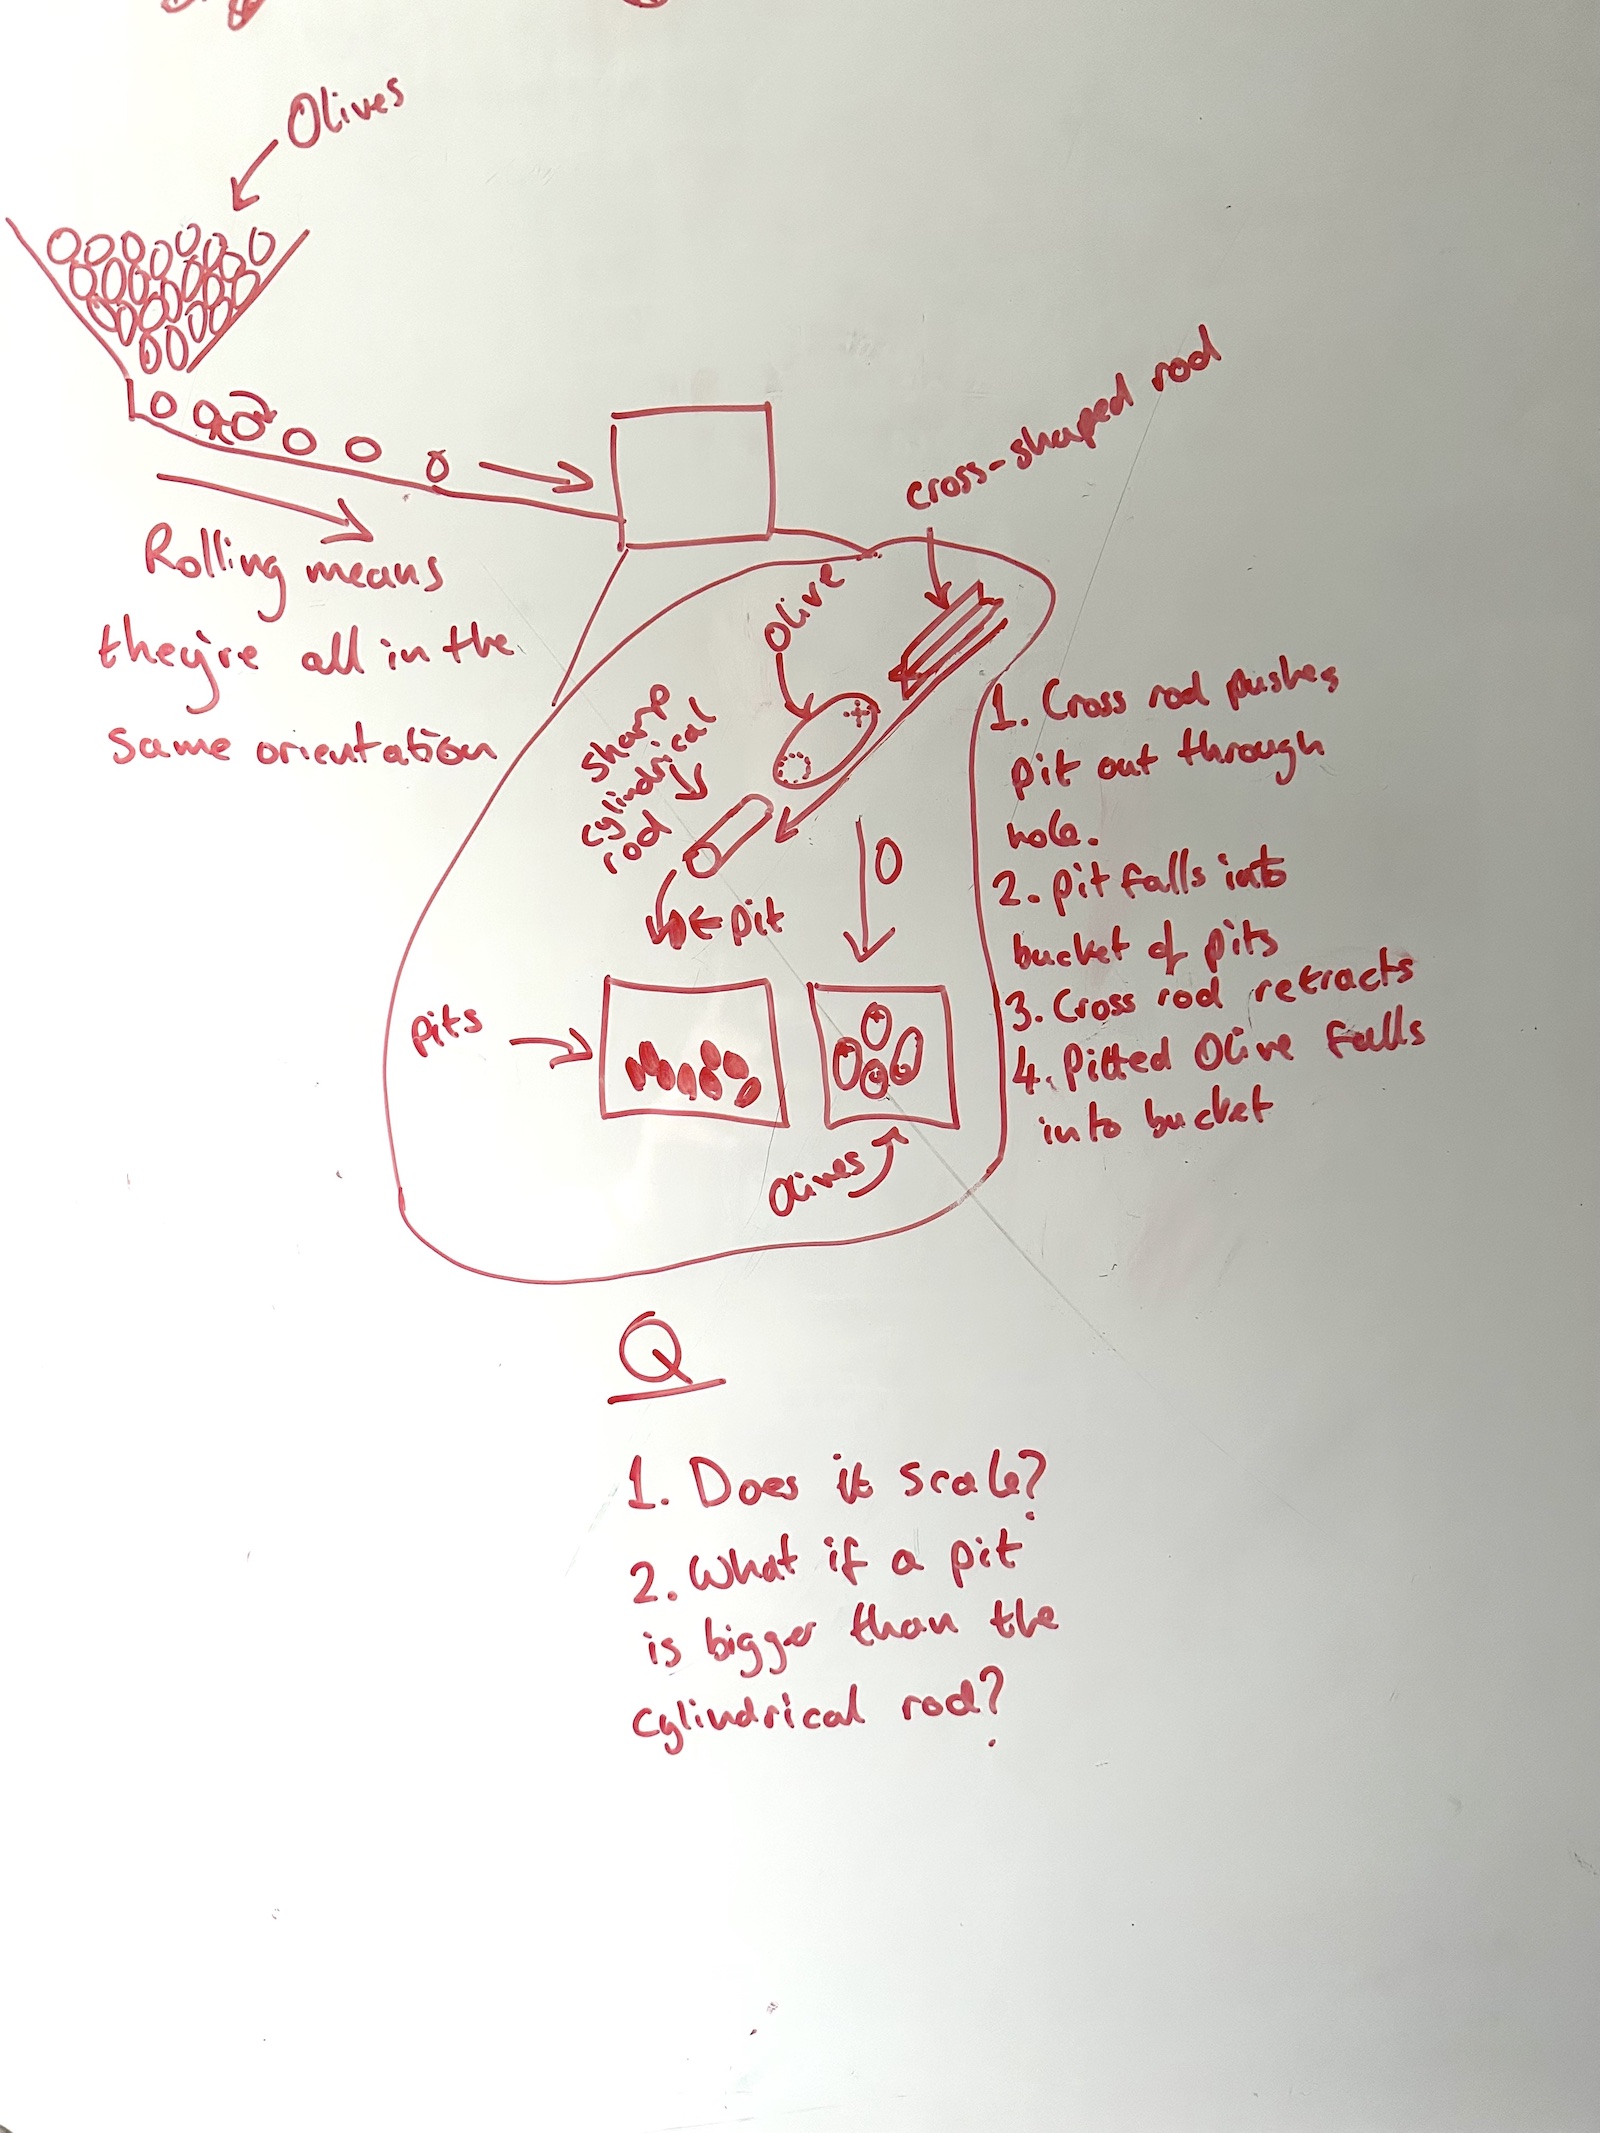 Olives
Rolling means
they're all in the
same orientation
cross-shaped rod
Olive
sharp
cylindrical
rod
pit
pits
Olives
1. Cross rod pushes
pit out through
hole.
2. pit falls into
bucket of pits
3. Cross rod retracts
4. Pitted Olive falls
into bucket
Q
1. Does it scale?
2. What if a pit
is bigger than the
cylindrical rod?